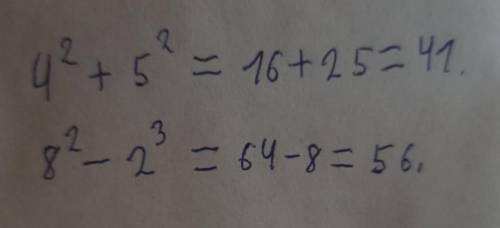 4² + 5² = 16 + 25 = 41.
8² - 2³ = 64 - 8 = 56.